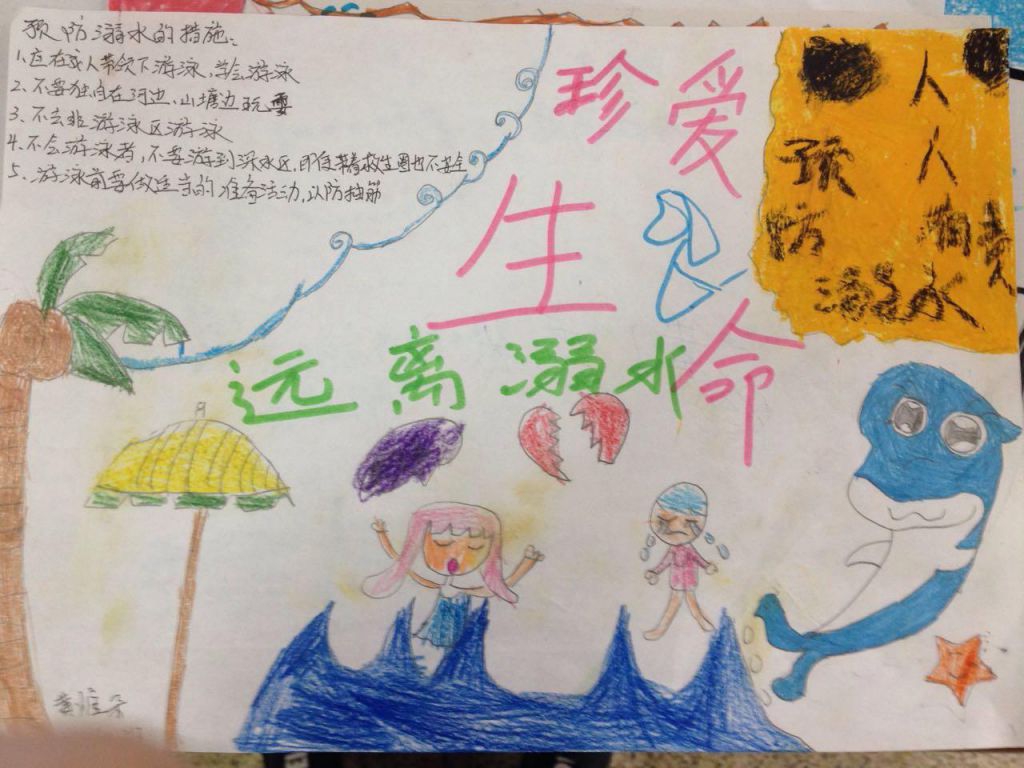 预防溺水的措施:
1.应在成人带领下游泳,学会游泳
2.不要独自在河边、山塘边玩耍
3.不去非游泳区游泳
4.不会游泳者,不要游到深水区,即使带着救生圈也不安全
5.游泳前要做适当的准备活动,以防抽筋
珍爱
生命
远离溺水
人人有责
预防溺水